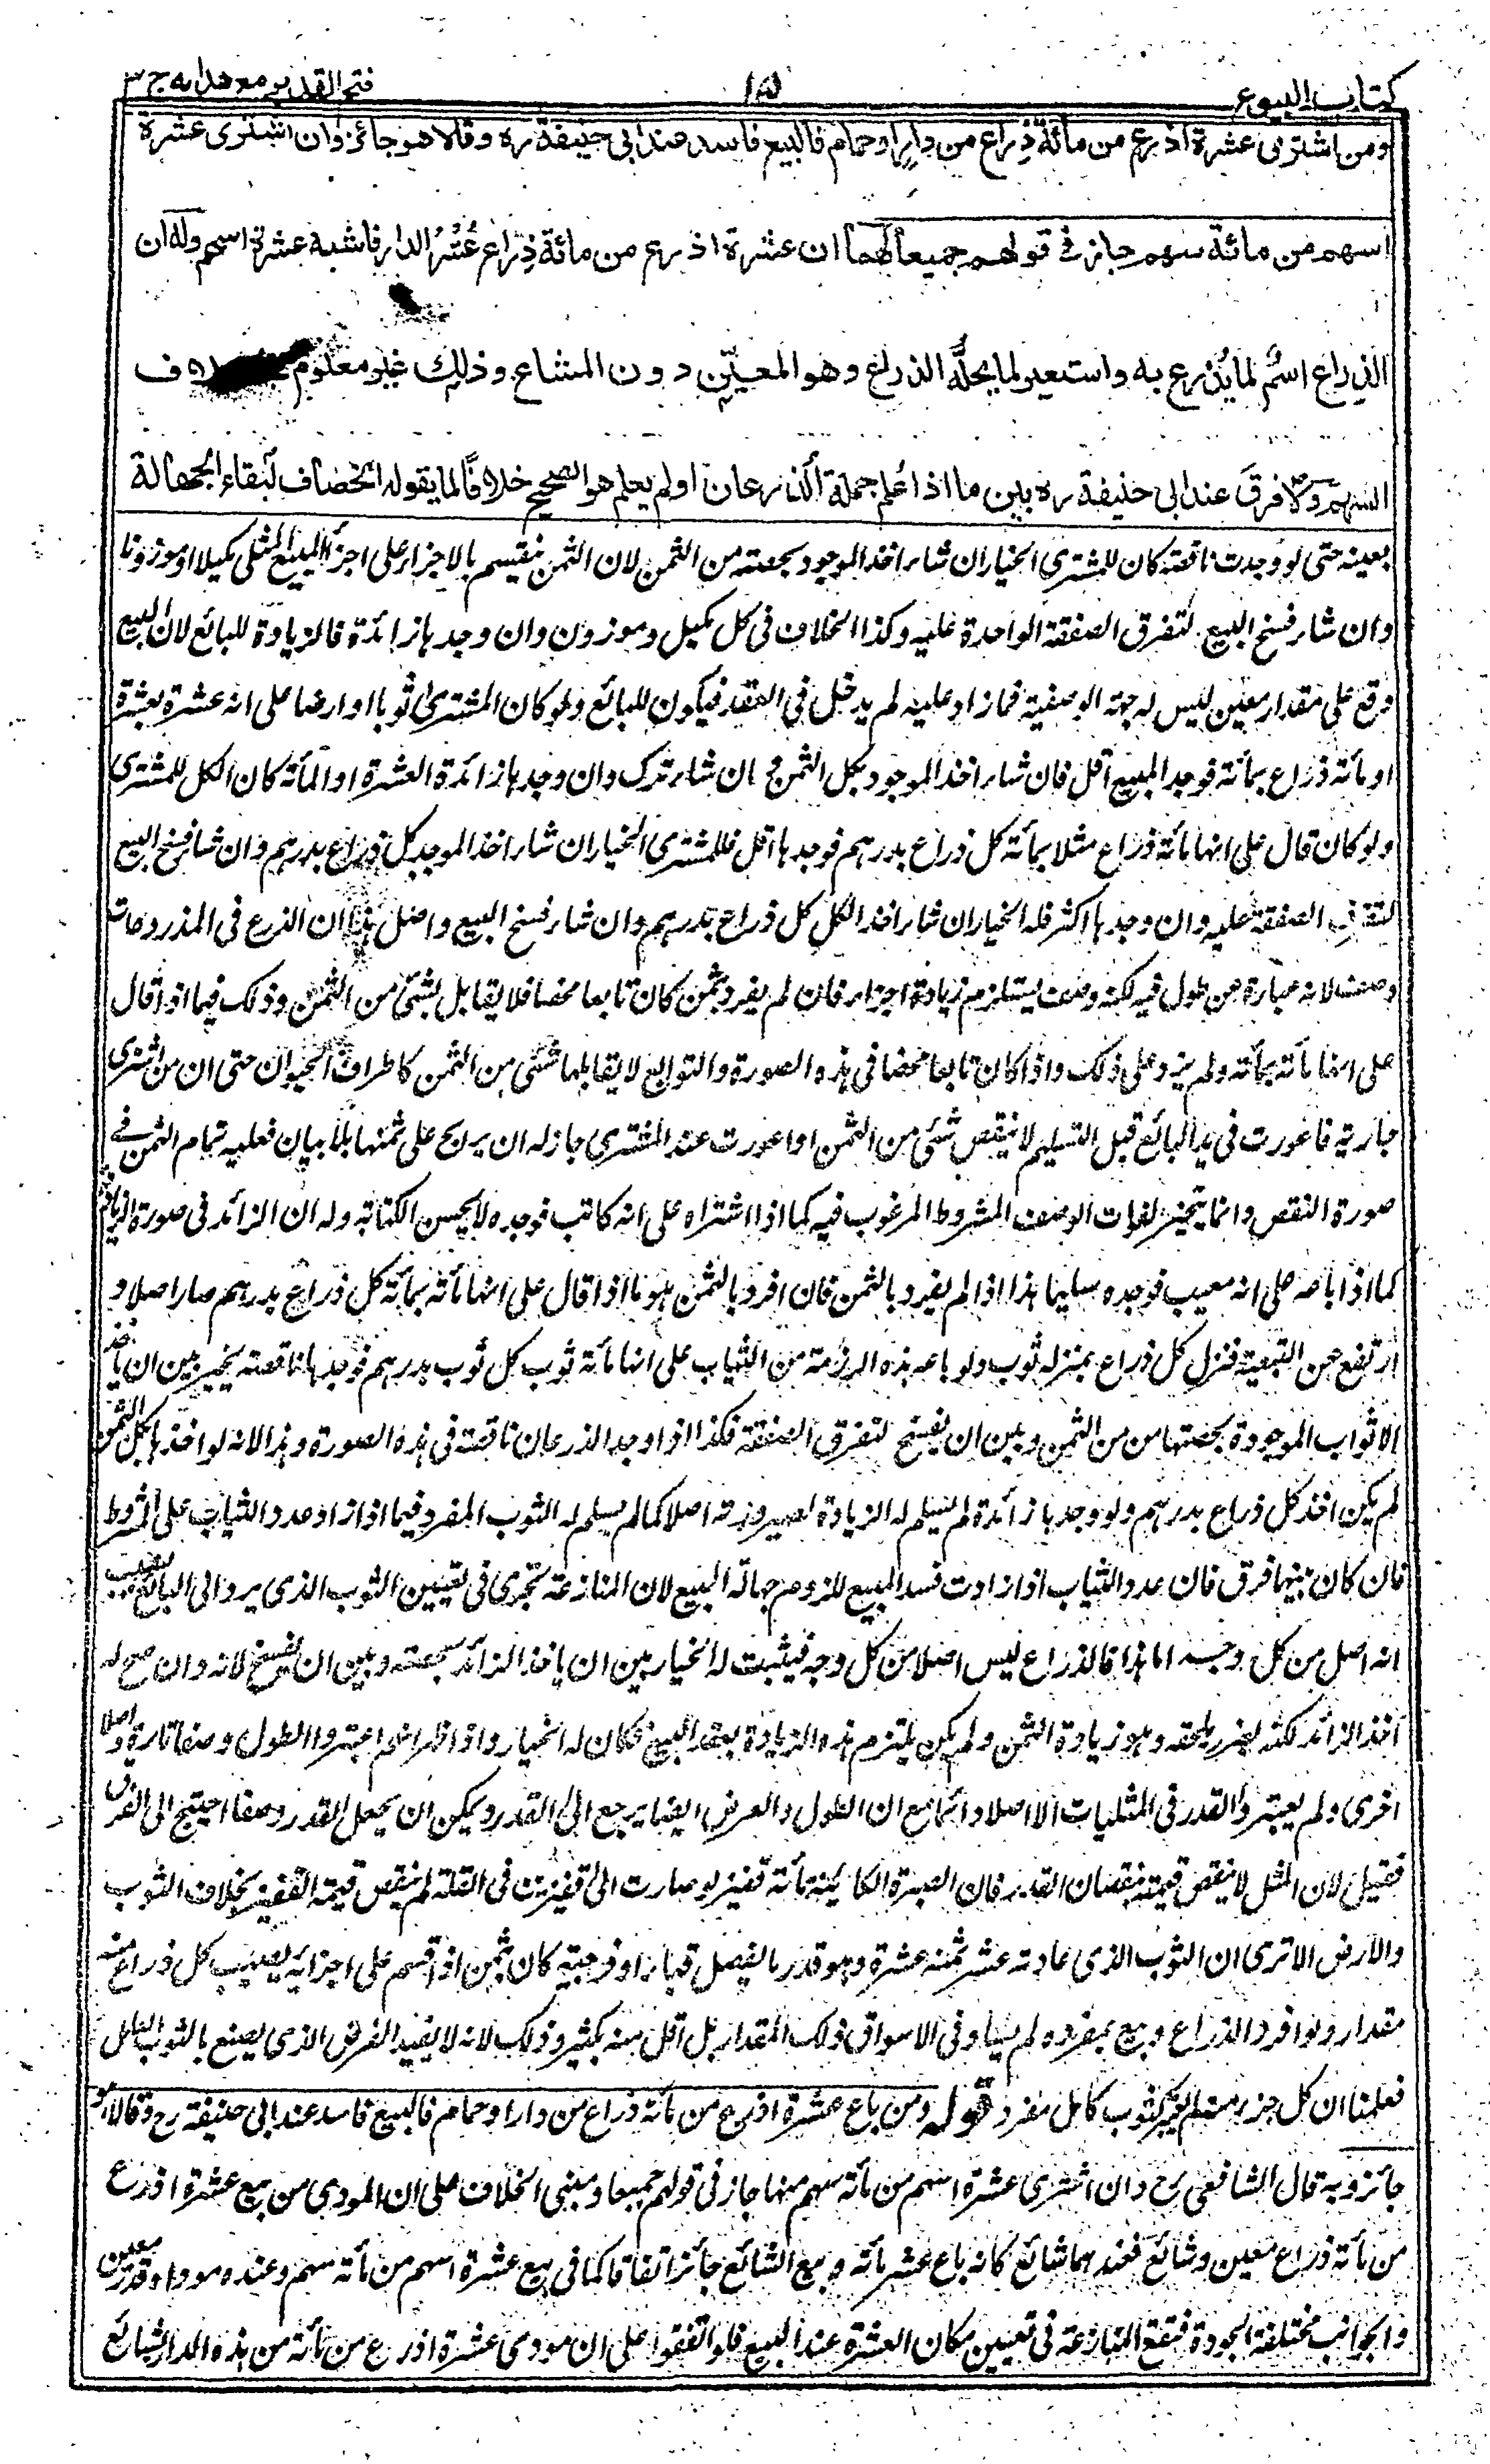 كتاب البيوع
١٥
فتح القدير مع هدايه ج ٣
ومن اشترى عشرة اذرع من مائة ذراع من دار او حمام فالبيع فاسد عند ابى حنيفة ره وقالا هو جائز وان اشترى عشرة
اسهم من مائة سهم جاز فى قولهم جميعا لهما ان عشرة اذرع من مائة ذراع عشر الدار فاشبه عشرة اسهم وله ان
الذراع اسم لما يذرع به واستعير لما يحله الذراع وهو المعين دون المشاع وذلك غير معلوم
السهم ولا فرق عند ابى حنيفة ره بين ما اذا علم جملة الذرعان او لم يعلم هو الصحيح خلافا لما يقوله الخصاف لبقاء الجهالة
بعينه حتى لو وجدت ناقصة كان للمشترى الخيار ان شاء اخذ الموجود بحصته من الثمن لان الثمن ينقسم بالاجزاء على اجزاء المبيع المثلى مكيلا او موزونا
وان شاء فسخ البيع لتفرق الصفقة الواحدة عليه وكذا الخلاف فى كل مكيل وموزون وان وجدها زائدة فالزيادة للبائع لان البيع
وقع على مقدار معين ليس له جهة الوصفية فما زاد عليه لم يدخل فى العقد فيكون للبائع ولو كان المشترى ثوبا او ارضا على انه عشرة بعشرة
او مائة ذراع بمائة فوجد المبيع اقل فان شاء اخذ الموجود بكل الثمن ان شاء ترك وان وجدها زائدة العشرة او المائة كان الكل للمشترى
ولو كان قال على انها مائة ذراع مثلا بمائة كل ذراع بدرهم فوجدها اقل فللمشترى الخيار ان شاء اخذ الموجد كل ذراع بدرهم وان شاء فسخ البيع
لتفرق الصفقة عليه وان وجدها اكثر فله الخيار ان شاء اخذ الكل كل ذراع بدرهم وان شاء فسخ البيع واصل هذا ان الذرع فى المذروعات
وصف لانه عبارة عن طول فيه لكنه وصف يستلزم زيادة اجزاء فان لم يفرد بثمن كان تابعا محضا فلا يقابل بشئ من الثمن وذلك فيما اذا قال
على انها مائة بمائة ولم يزد على ذلك واذا كان تابعا محضا فى هذه الصورة والتوابع لا يقابلها شئ من الثمن كاطراف الحيوان حتى ان من اشترى
جارية فاعورت فى يد البائع قبل التسليم لا ينقص شئ من الثمن او اعورت عند المشترى جاز له ان يربح على ثمنها بلا بيان فعليه تمام الثمن فى
صورة النقص وانما يتخير لفوات الوصف المشروط المرغوب فيه كما اذا اشتراه على انه كاتب فوجده لا يحسن الكتابة وله ان الزائد فى صورة الزيادة
كما اذا باعه على انه معيب فوجده سليما هذا اذا لم يفرد بالثمن فان افرد بالثمن وهو ما اذا قال على انها مائة بمائة كل ذراع بدرهم صار اصلا و
ارتفع عن التبعية فنزل كل ذراع بمنزلة ثوب ولو باعه هذه الرزمة من الثياب على انها مائة ثوب كل ثوب بدرهم فوجدها ناقصة يخير بين ان ياخذ
الاثواب الموجودة بحصتها من الثمن وبين ان يفسخ لتفرق الصفقة فكذا اذا وجد الذرعان ناقصة فى هذه الصورة وهذا لانه لو اخذها بكل الثمن
لم يكن اخذ كل ذراع بدرهم ولو وجدها زائدة لم يسلم له الزيادة لصيرورته اصلا كما لم يسلم له الثوب المفرد فيما اذا زاد عدد الثياب على المشروط
فان كان بينهما فرق فان عدد الثياب اذا زادت فسد البيع للزوم جهالة المبيع لان المنازعة تجرى فى تعيين الثوب الذى يرد الى البائع بسبب
انه اصل من كل وجه اما هذا فالذراع ليس اصلا من كل وجه فيثبت له الخيار بين ان ياخذ الزائد بحصته وبين ان يفسخ لانه وان صح له
اخذ الزائد لكنه بضرر يلحقه وهو زيادة الثمن ولم يكن يلتزم هذه الزيادة بعقد البيع فكان له الخيار واذا ظهر انهم اعتبروا الطول وصفا تارة واصلا
اخرى ولم يعتبروا القدر فى المثليات الا اصلا دائما مع ان الطول والعرض ايضا يرجع الى القدر ويمكن ان يجعل القدر وصفا احتيج الى الفرق
فقيل لان المثل لا ينقص قيمته بنقصان القدر فان الصبرة الكائنة مائة قفيز لو صارت الى قفيزين فى القلة لم ينقص قيمة القفيز بخلاف الثوب
والارض الا ترى ان الثوب الذى عادته عشر ثمنه عشرة وهو قدر ما يفصل قباء او فرجية كان بثمن اذا قسم على اجزائه يصيب كل ذراع منه
مقدار ولو افرد الذراع وبيع بمفرده لم يساو فى الاسواق ذلك المقدار بل اقل منه بكثير وذلك لانه لا يفيد الغرض الذى يصنع بالثوب الكامل
فعلمنا ان كل جزء منه لم يعتبر كثوب كامل مفرد قوله ومن باع عشرة اذرع من مائة ذراع من دار او حمام فالبيع فاسد عند ابى حنيفة رح وقالا هو
جائز وبه قال الشافعى رح وان اشترى عشرة اسهم من مائة سهم منها جاز فى قولهم جميعا ومبنى الخلاف على ان المودى من بيع عشرة اذرع
من مائة ذراع معين وشائع فعندهما شائع كانه باع عشر مائة وبيع الشائع جائز اتفاقا كما فى بيع عشرة اسهم من مائة سهم وعنده موداه قدر معين
والجوانب مختلفة الجودة فيقع المنازعة فى تعيين مكان العشرة عند البيع فلو اتفقوا على ان مودى عشرة اذرع من مائة من هذه الدار شائع